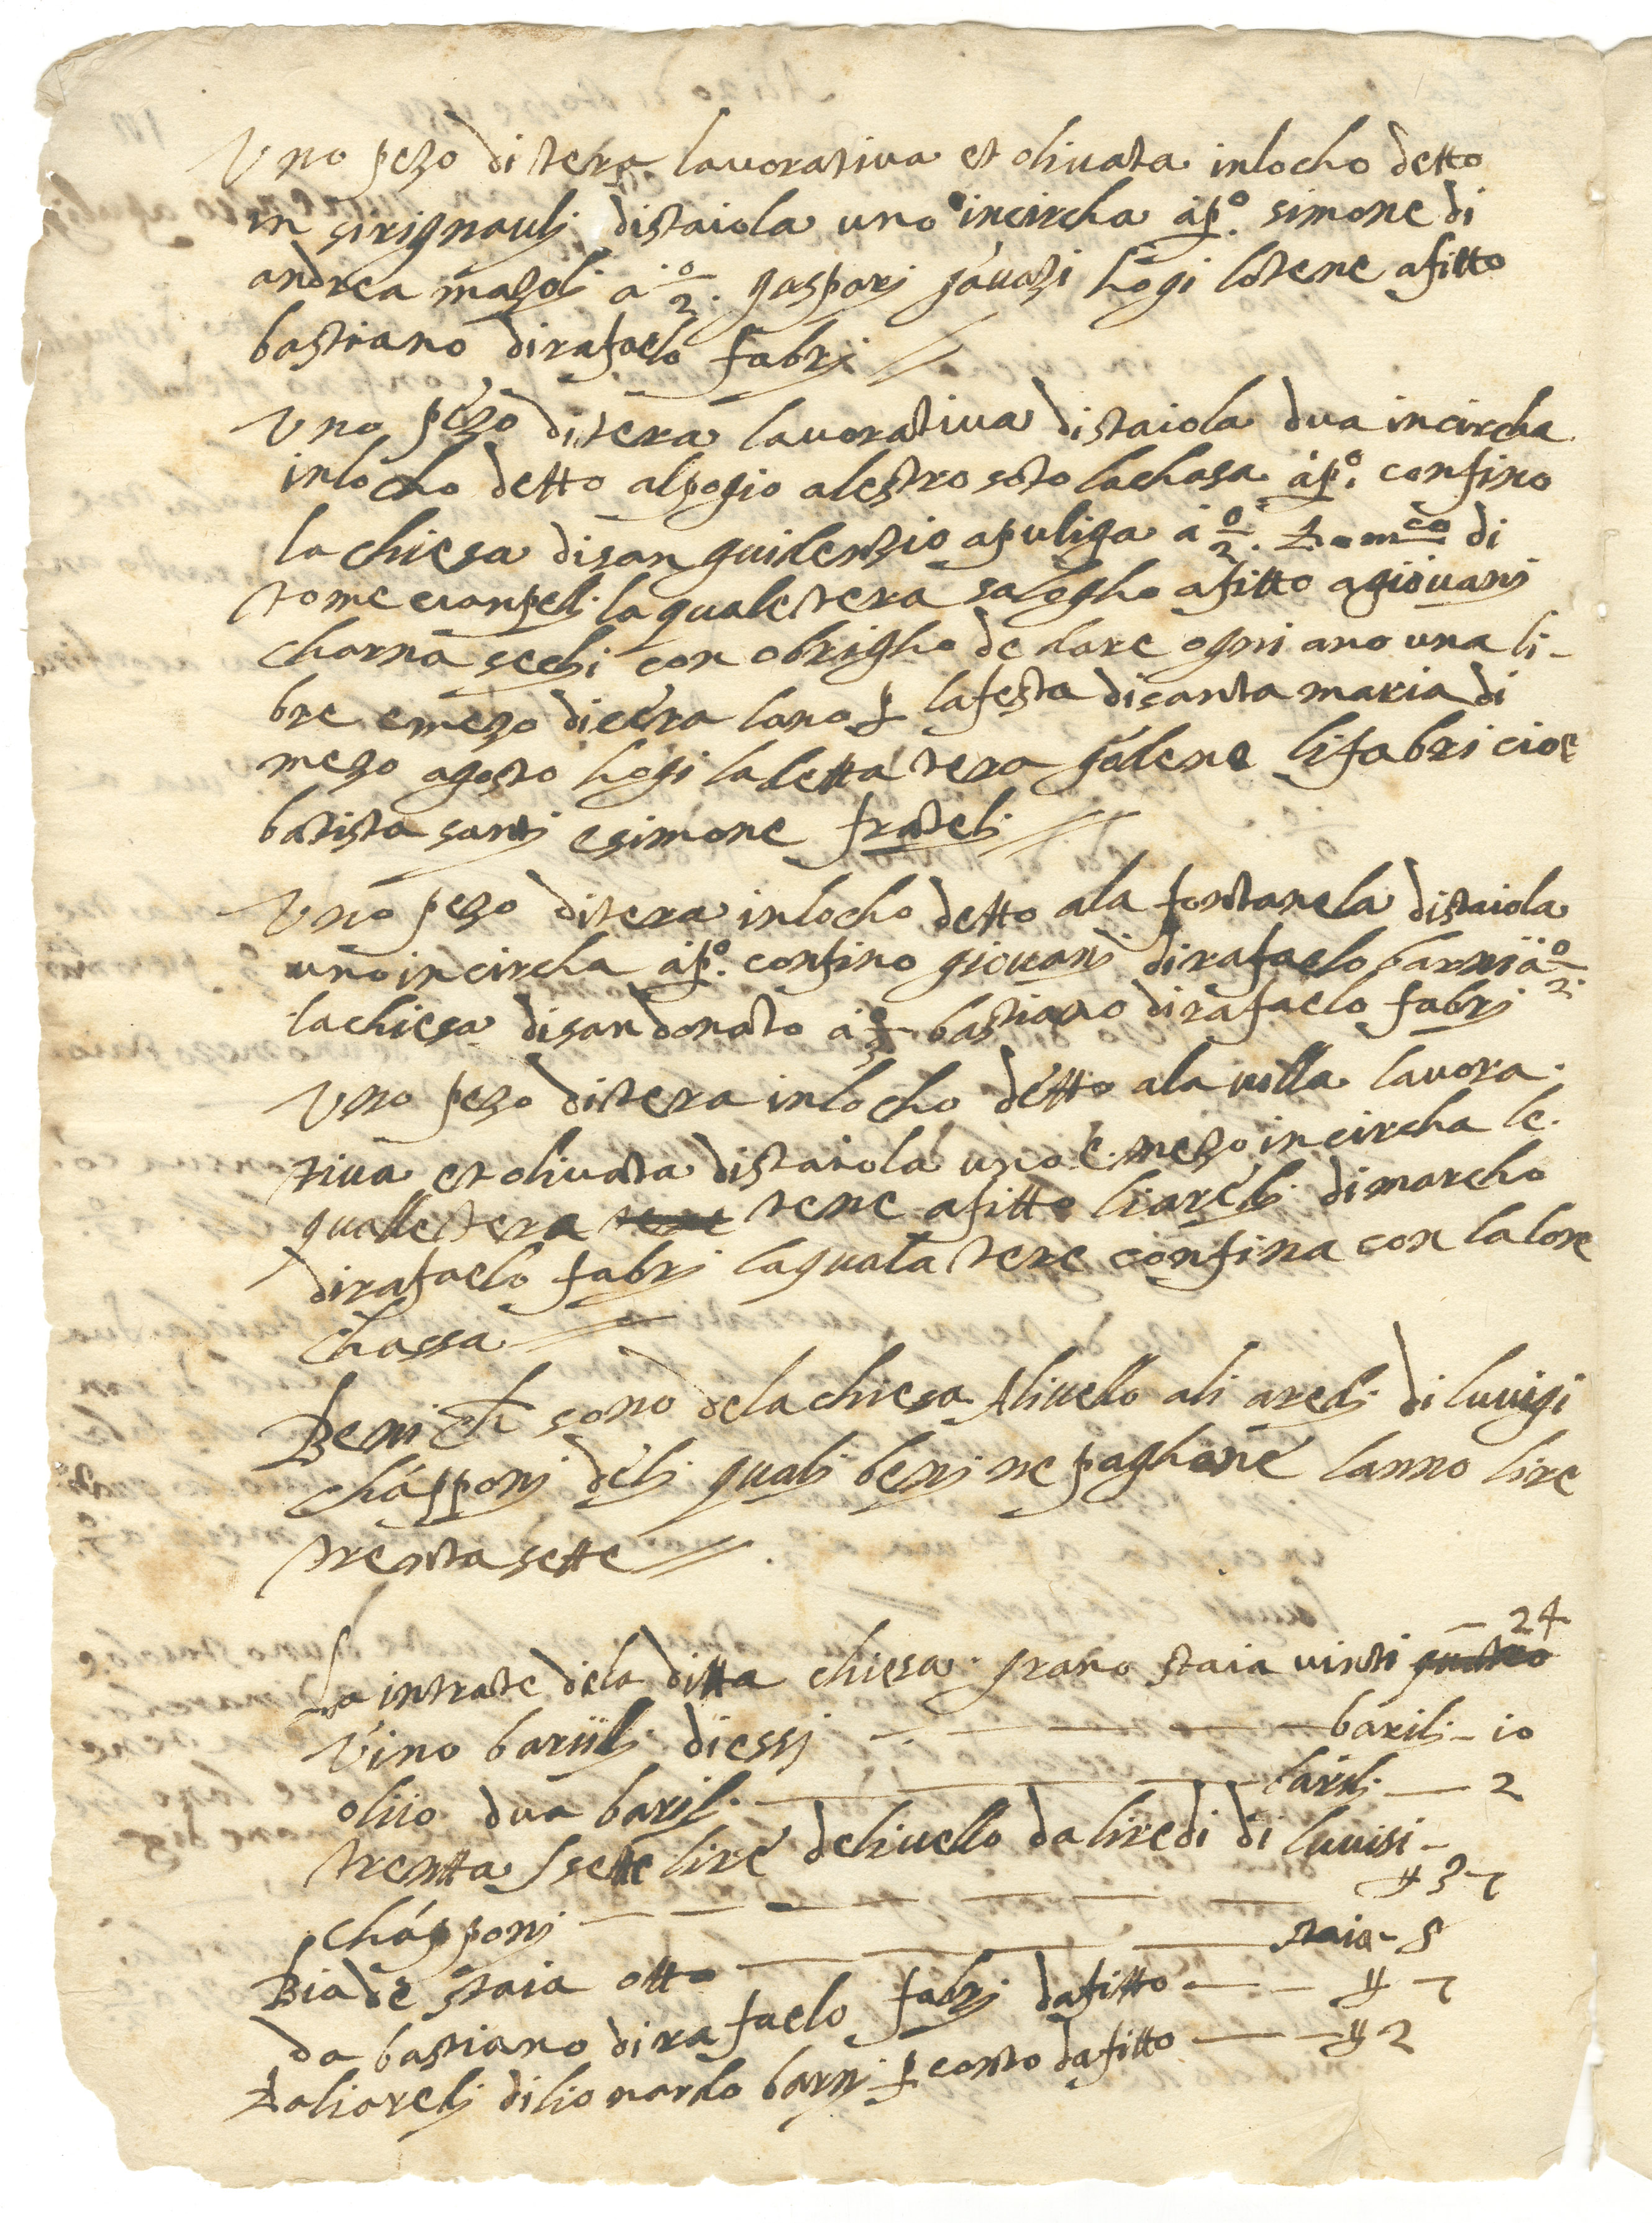 Uno pezo di tera lavorativa et olivata inlocho detto
in sirignauli distaiola uno incircha a p.º simone di
andrea mazoli a 2.º gaspari gavazi hogi lotene afitto
bastiano dirafaelo fabri
Uno pezo di tera lavorativa distaiola dua incircha
inlocho detto alpogio alestro soto lachasa a p.º confino
la chiesa disan apuliga a 2.º Dom.co di
tome vangeli laquale tera alogho afitto agiovani
charna sechi con obrigho de dare ogni ano una li-
bre emezo dicera lano p lafesta disanta maria di
mezo agosto hogi ladetta tera golene lifabri cioe
batista santi esimone frateli
Uno pezo ditera inlocho detto ala fontanela distaiola
uno incircha a p.º confino giovani dirafaelo barni a 2.º
lachiesa disandonato a 3.º bastiano dirafaelo fabri
Uno pezo ditera inlocho detto ala villa lavora-
tiva et olivata distaiola uno e mezo incircha le
qualle tera tene tene afitto liaredi dimarcho
dirafaelo fabri laquala tere confina con lalore
chassa
Beni ch sono delachiesa Alivello ali aredi di luuigi
chapponi deli quali beni ne paghane lanno lire
trenta sette
La intrate dela ditta chiesa grano staia vinti quatro 24
Vino bariili diessi barili 10
oliio dua barili barili 2
trentta ssette lire delivello da liredi di luuisi
chapponi # 37
Biade staia otto staia 8
da bastiano dirafaelo fabri dafitto # 7
Daliaredi dilionardo barni p conto dafitto # 2